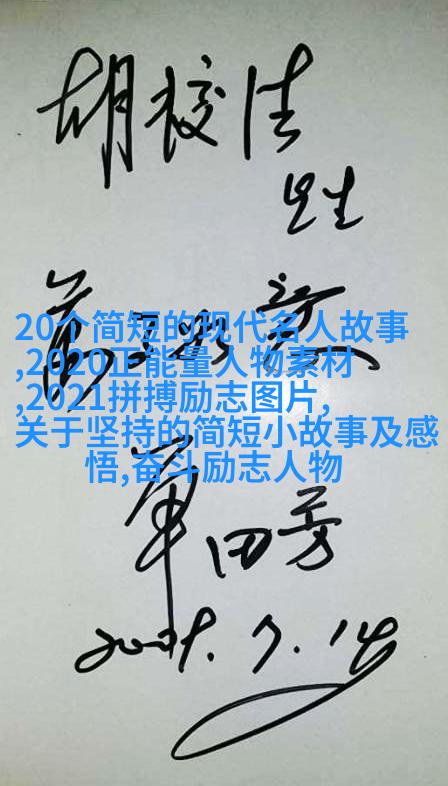 胡校
先生
20个简短的现代名人故事
,2020正能量人物素材
,2021拼搏励志图片,
关于坚持的简短小故事及感
悟,奋斗励志人物
单田芳